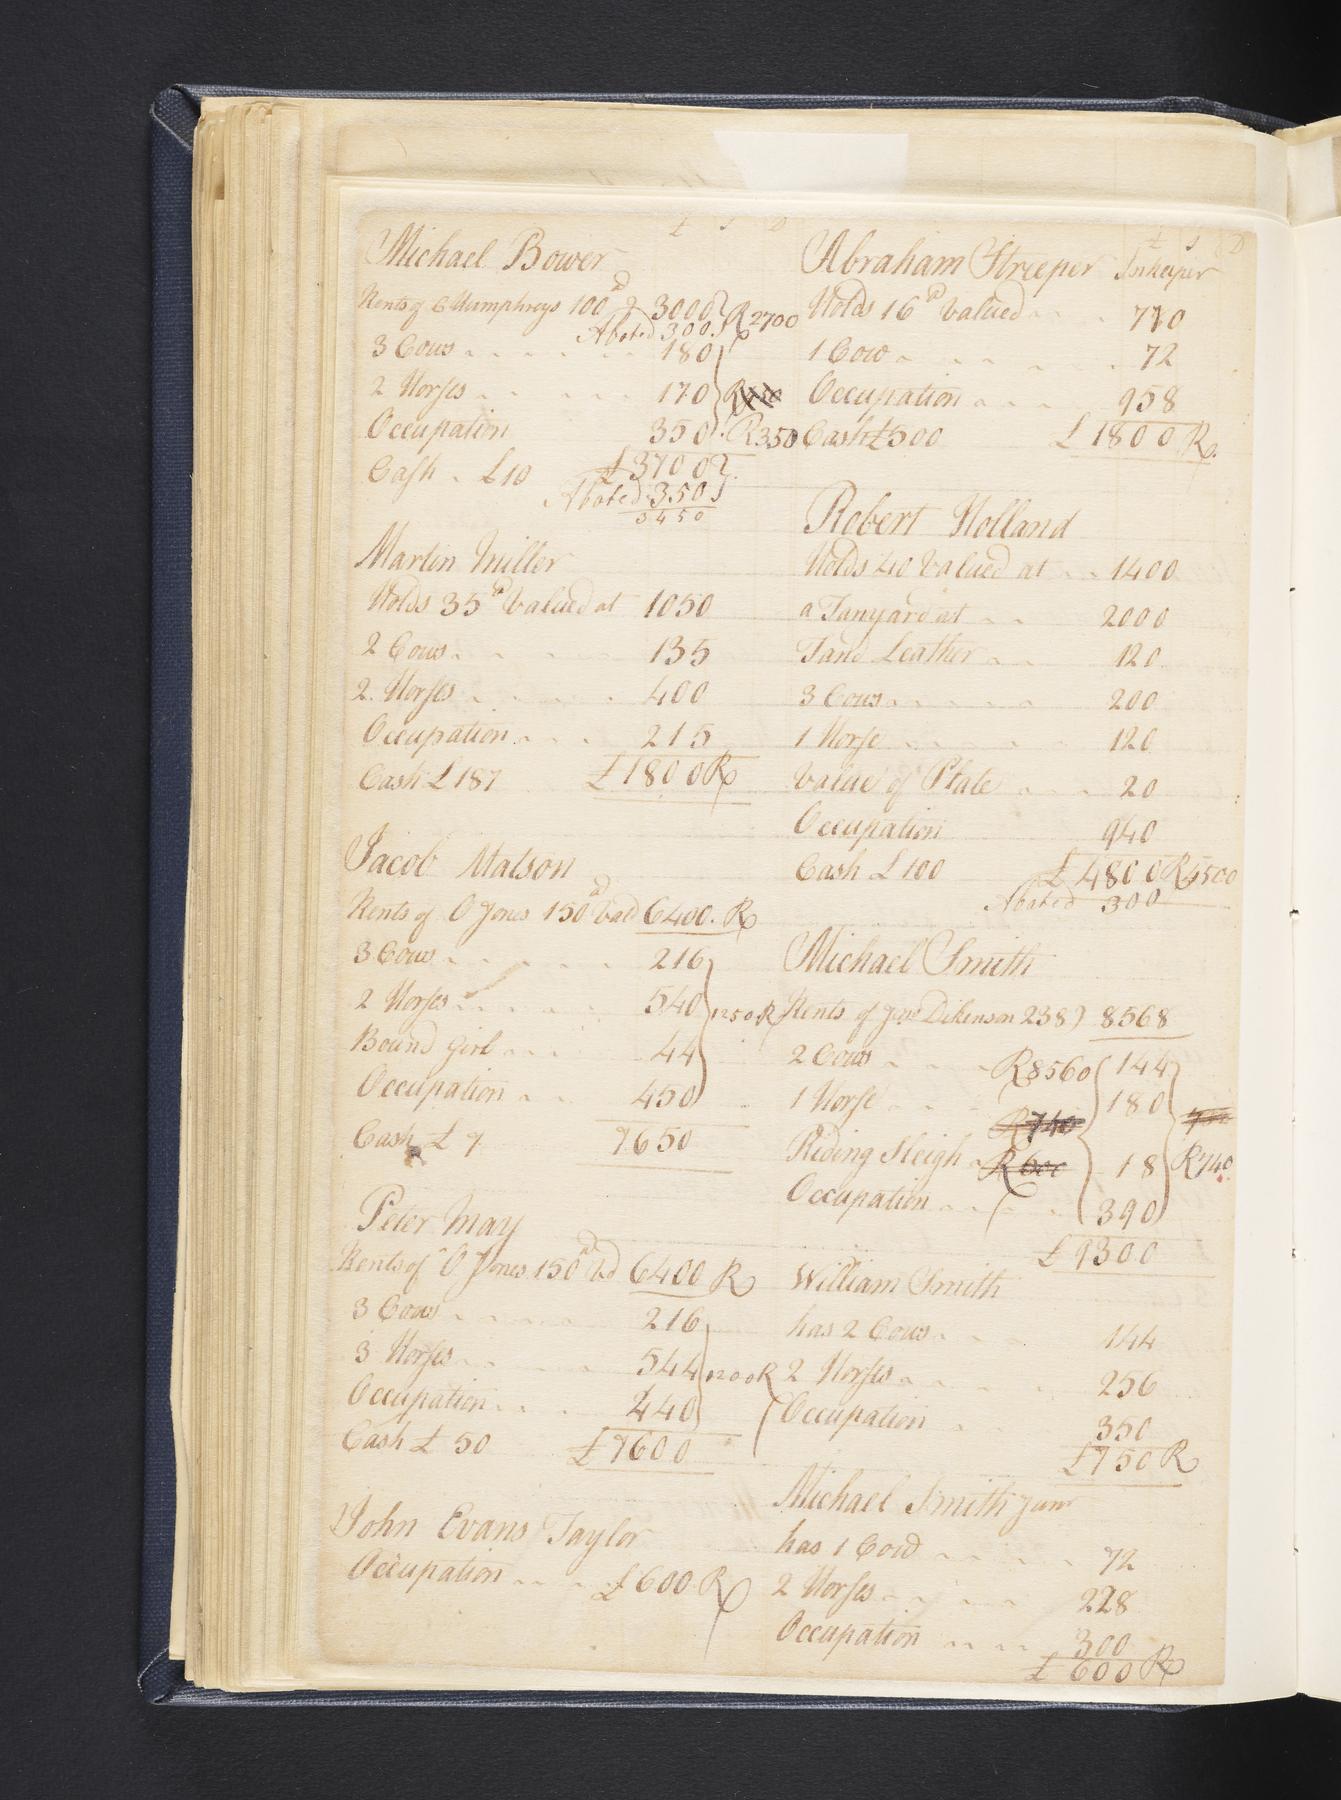 £ S D
Michael Bower
Rents of C Humphreys 100 a 3000 R 2700
Abated 300
3 Cows 180
2 Horses 170
Occupation 350 R350
Cash £10 £3700
Abated 350
3450
Martin Miller
Holds 35 a Valued at 1050
2 Cows 135
2 Horses 400
Occupation 215
Cash £187 £1800 R
Jacob Matson
Rents of O Jones 150 a Vald 6400 R
3 Cows 216
2 Horses 540 1250 R
Bound Girl 44
Occupation 450
Cash £7 7650
Peter May
Rents of O Jones 150 a Vd 6400 R
3 Cows 216
3 Horses 544 1200 R
Occupation 440
Cash £50 £7600
John Evans Taylor
Occupation £600 R
£ S D
Abraham Streeper Inkeeper
Holds 16 a Valued 770
1 Cow 72
Occupation 958
Cash £500 £1800 R
Robert Holland
Holds 40 Valued at 1400
a Tanyard at 2000
Tand Leather 120
3 Cows 200
1 Horse 120
Value of Plate 20
Occupation 940
Cash £100 £4800 R4500
Abated 300
Michael Smith
Rents of Jno Dikenson 238) 8568
2 Cows R8560 144
1 Horse R740 180
Riding Sleigh R600 18 R740
Occupation 390
£9300
William Smith
has 2 Cows 144
2 Horses 256
Occupation 350
£750 R
Michael Smith Junr
has 1 Cow 72
2 Horses 228
Occupation 300
£600 R